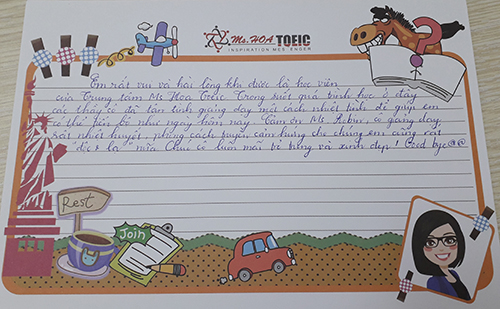 Ms. HOA TOEIC
INSPIRATION MESSENGER
Em rất vui và hài lòng khi được là học viên
của Trung tâm Ms Hoa Toeic. Trong suốt quá trình học ở đây
các thầy cô đã tận tình giảng dạy một cách nhiệt tình để giúp em
có thể tiến bộ như ngày hôm nay. Cảm ơn Ms. Robin, cô giảng dạy
rất nhiệt huyết, phong cách truyền cảm hứng cho chúng em cũng rất
"độc & lạ" nữa. Chúc cô luôn mãi trẻ trung và xinh đẹp! Good bye @@
Rest
Join